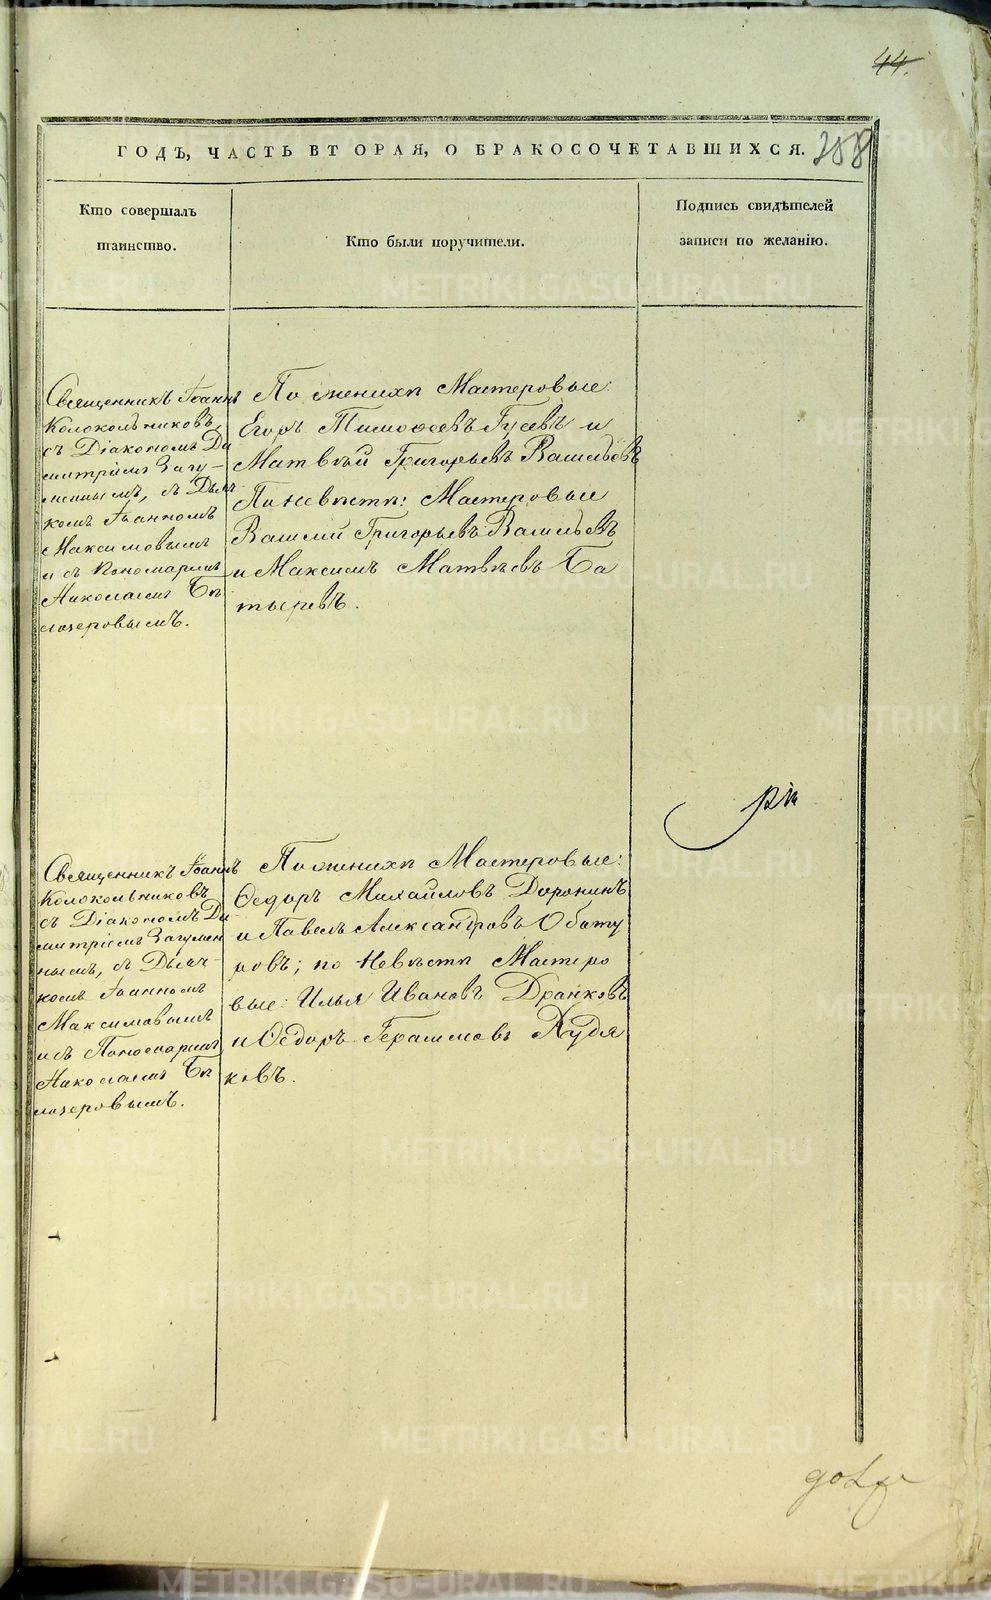 44.
ГОДЪ, ЧАСТЬ ВТОРАЯ, О БРАКОСОЧЕТАВШИХСЯ.
258
Кто совершалъ
таинство.
Кто были поручители.
Подпись свидѣтелей
записи по желанію.
Священникъ Іоаннъ
Колокольниковъ,
съ Діакономъ Ди
митріемъ Загу-
меннымъ, съ Дьяч
комъ Іоанномъ
Максимовымъ
и съ Пономаремъ
Николаемъ Бѣ
лозеровымъ.
По женихѣ Мастеровые:
Егоръ Тимоѳеевъ Гусевъ и
Матвѣй Григорьевъ Васильевъ
По невѣстѣ: Мастеровые
Василій Григорьевъ Васильевъ
и Максимъ Матвѣевъ Ба
тыревъ.
Священникъ Іоаннъ
Колокольниковъ,
съ Діакономъ Ди
митріемъ Загумен
нымъ, съ Дьяч-
комъ Іоанномъ
Максимовымъ
и съ Пономаремъ
Николаемъ Бѣ
лозеровымъ.
По женихѣ Мастеровые:
Ѳедоръ Михайловъ Доронинъ
и Павелъ Александровъ Обату
ровъ; по Невѣстѣ Мастеро
вые: Илья Ивановъ Драйковъ
и Ѳедоръ Герасимовъ Худя
ковъ.
METRIKI.GASO-URAL.RU